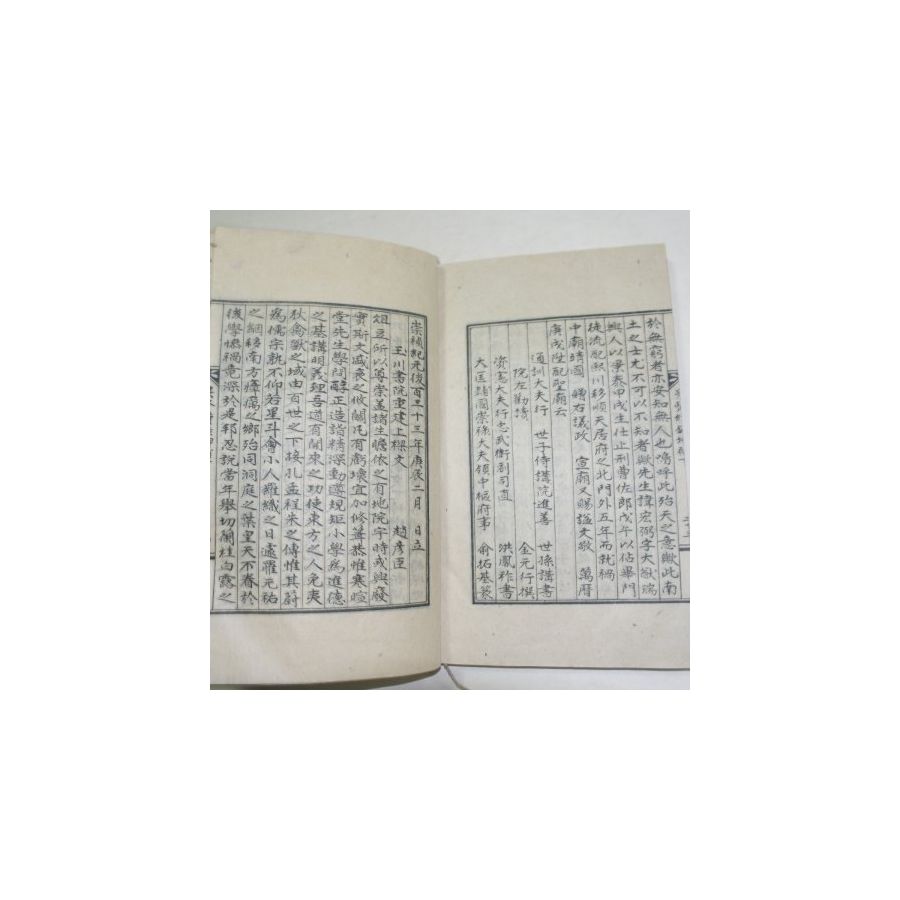 於無窮者亦安知無人也嗚呼此殆天之意歟此南
土之士尤不可以不知者歟先生諱宏弼字大猷瑞
興人以景泰甲戌生仕止刑曹佐郎戊午以佔畢門
徒流配熙川移順天居府之北門外五年而就禍
中廟時國 贈右議政 宣廟又賜謚文敬 萬曆
庚戌陞配聖廟云
通訓大夫行 世子侍講院進善 世孫講書
院左勸讀 金元行撰
資憲大夫行忠武衛副司直 洪鳳祚書
大匡輔國崇祿大夫領中樞府事 俞拓基篆
崇禎紀元後百三十三年庚辰二月 日立
玉川書院重建上樑文 趙彥臣
俎豆所以尊崇盖諸生瞻依之有地院宇時或興廢
實斯文盛衰之攸關凡有虧壞宜加修葺恭惟寒暄
堂先生學問醇正造詣精深動遵規矩小學爲進德
之基講明義理吾道有開來之功使東方之人免夷
狄禽獸之域由百世之下接孔孟程朱之傳惟其蔚
爲儒宗孰不仰若星斗會小人羅織之日遽罹元祐
之網移南方瘴癘之鄉殆同洞庭之葉皇天不眷於
後學慘禍竟深於是邦忍說當年舉切蘭桂白露之